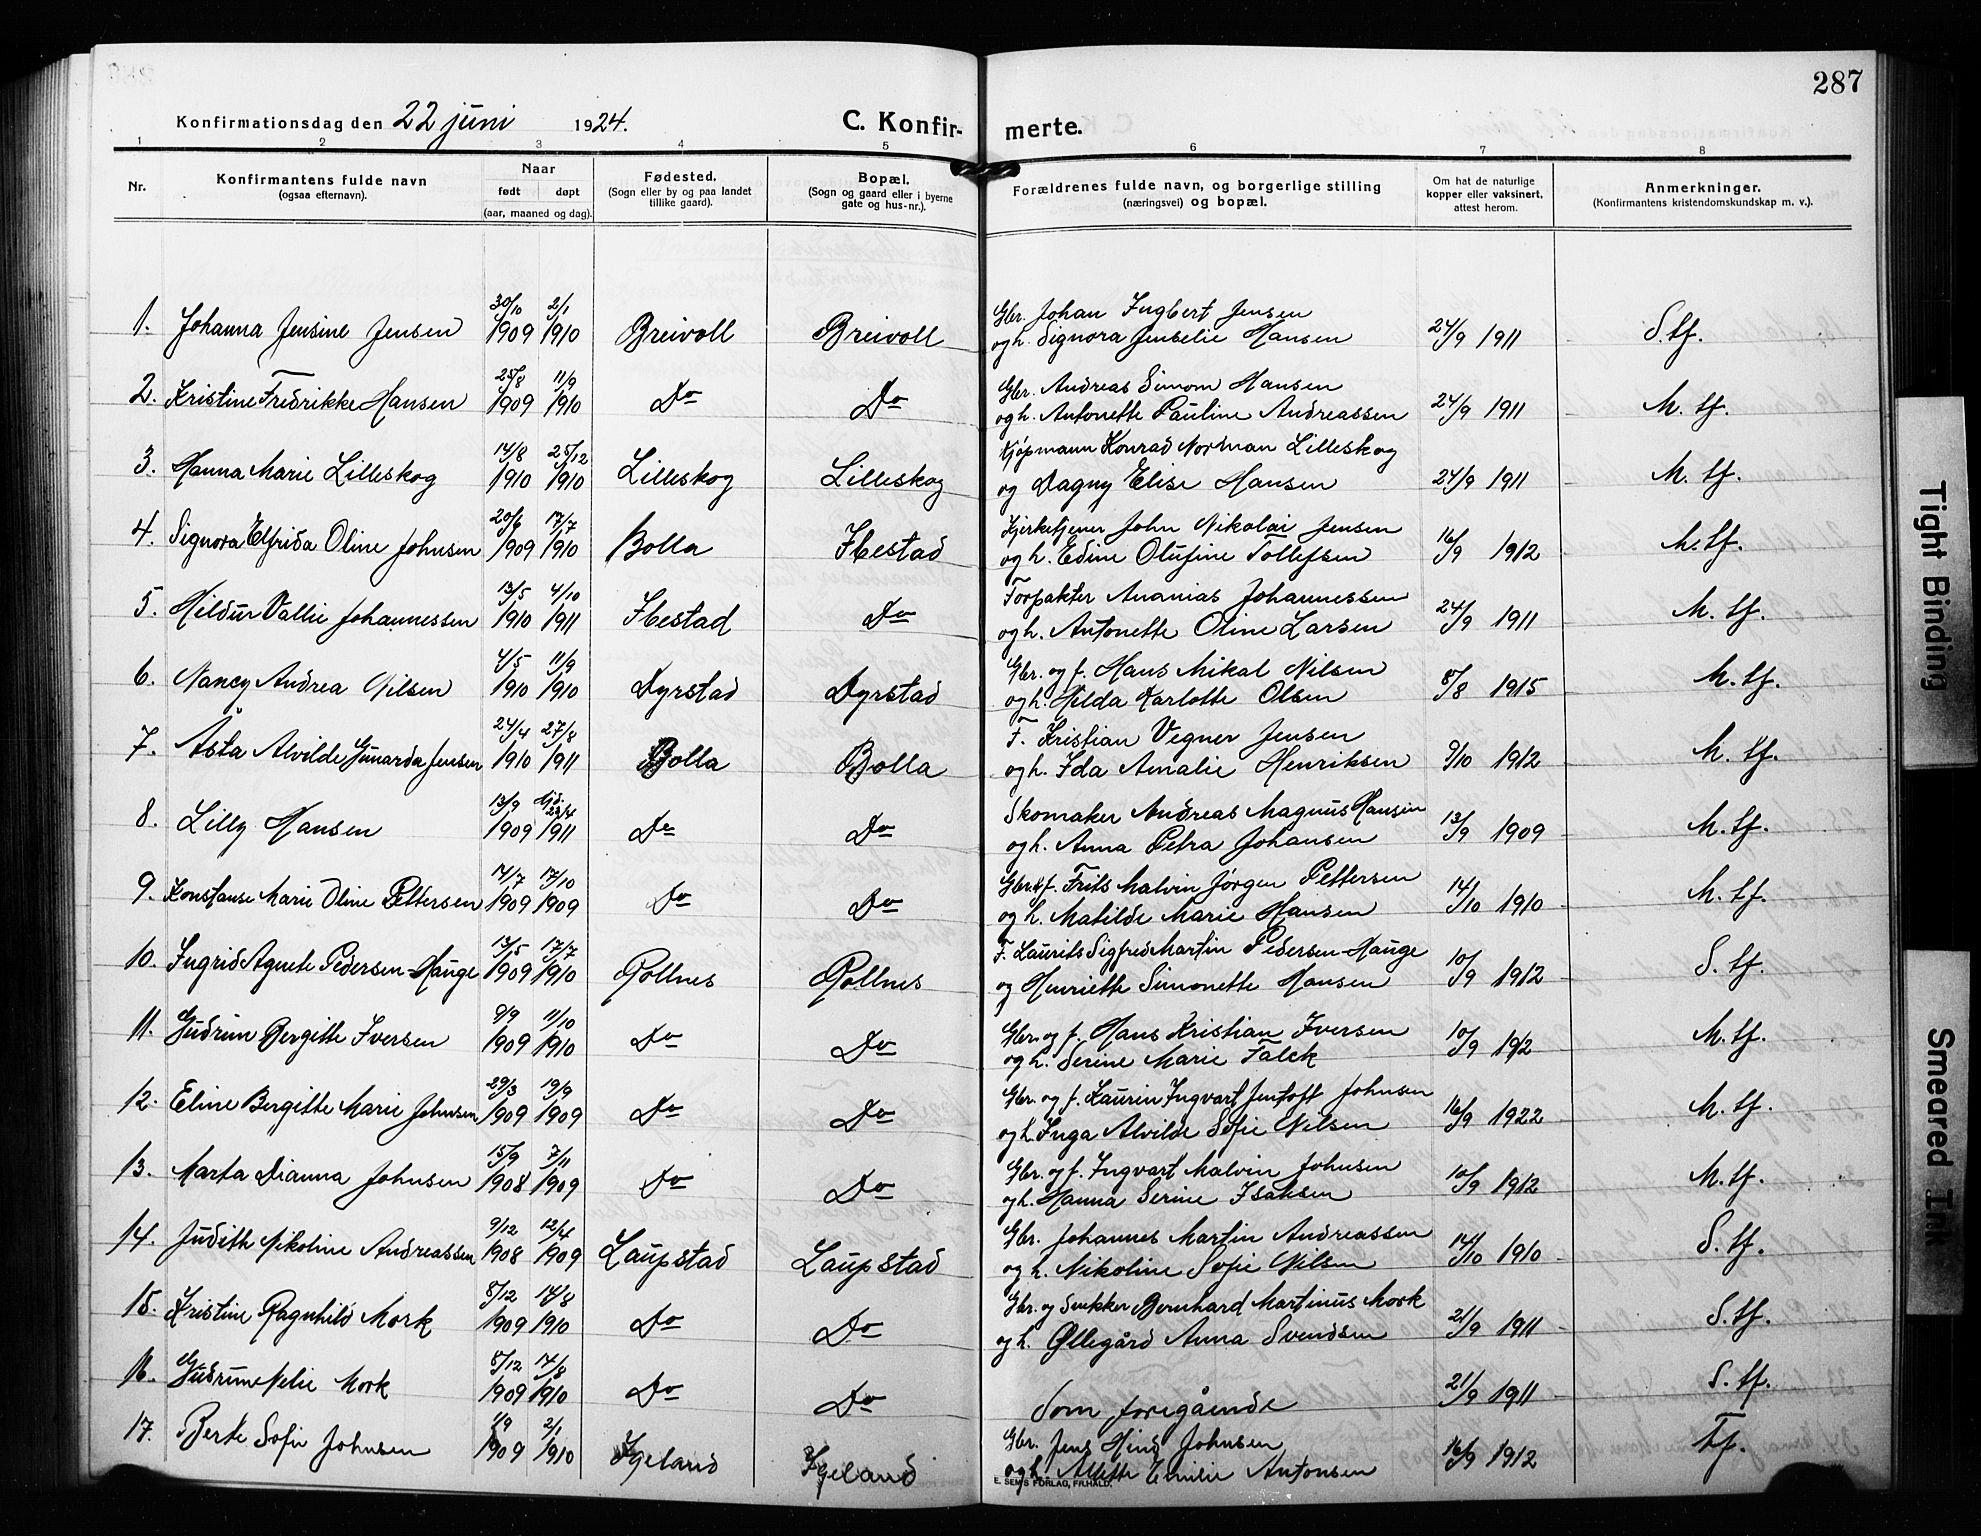 287
Konfirmationsdag den 22 juni 1924. C. Konfir- merte.
1 2 3 4 5 6 7 8
Nr. Konfirmantens fulde navn (ogsaa efternavn). Naar født døpt (aar, maaned og dag). Fødested. (Sogn eller by og paa landet tillike gaard). Bopæl. (Sogn og gaard eller i byerne gate og hus-nr.). Forældrenes fulde navn, og borgerlige stilling (næringsvei) og bopæl. Om hat de naturlige kopper eller vaksinert, attest herom. Anmerkninger. (Konfirmantens kristendomskundskap m. v.).
1. Johanna Jensine Jensen 30/10 1909 2/1 1910 Breivoll Breivoll Gbr. Johan Ingbert Jensen
og h. Signora Jenselie Hansen 24/9 1911 S. tf.
2. Kristine Fredrikke Hansen 25/8 1909 11/9 1910 Do Do Gbr. Andreas Simon Hansen
og h. Antonette Pauline Andreassen 24/9 1911 M. tf.
3. Hanna Marie Lilleskog 14/8 1910 25/12 1910 Lilleskog Lilleskog Kjøpmann Konrad Norman Lilleskog
og Dagny Elise Hansen 24/9 1911 M. tf.
4. Signora Elfrida Oline Johnsen 20/6 1909 17/7 1910 Bolla Ibestad Kjerketjener John Nikolai Jensen
og h. Edine Olufine Tollefsen 16/9 1912 M. tf.
5. Hildur Vallie Johannessen 13/5 1910 4/10 1911 Ibestad Do Forpakter Ananias Johannessen
og h. Antonette Oline Larsen 24/9 1911 M. tf.
6. Nancy Andrea Nilsen 4/5 1910 11/9 1910 Dyrstad Dyrstad Gbr. og f. Hans Mikal Nilsen
og h. Hilda Karlotte Olsen 8/8 1915 M. tf.
7. Asta Alvilde Gunarda Jensen 24/4 1910 27/8 1911 Bolla Bolla F. Kristian Vegner Jensen
og h. Ida Amalie Henriksen 9/10 1912 M. tf.
8. Lilly Hansen 13/9 1909 hjd. 23/4 1911 Do Do Skomaker Andreas Magnus Hansen
og h. Anna Petra Johansen 13/9 1909 M. tf.
9. Konstanse Marie Oline Pettersen 14/7 1909 17/10 1909 Do Do Gbr. & f. Frits Malvin Jørgen Pettersen
og h. Matilde Marie Hansen 14/10 1910 M. tf.
10. Ingrid Agnete Pedersen-Hauge 13/5 1909 17/7 1910 Rollnes Rollnes F. Laurits Sigfred Martin Pedersen-Hauge
og Henriette Simonette Hansen 10/9 1912 S. tf.
11. Gudrun Bergitte Iversen 9/9 1909 11/10 1910 Do Do Gbr. og f. Hans Kristian Iversen
og h. Serine Marie Falck 10/9 1912 M. tf.
12. Eline Bergitte Marie Johnsen 29/3 1909 19/9 1909 Do Do Gbr. og f. Laurin Ingvart Jentoft Johnsen
og h. Inga Alvilde Sofie Nilsen 16/9 1922 M. tf.
13. Marta Dianna Johnsen 15/9 1908 7/11 1909 Do Do Gbr. og f. Ingvart Malvin Johnsen
og h. Hanna Serine Isaksen 10/9 1912 M. tf.
14. Judith Nikoline Andreassen 9/12 1908 12/4 1909 Laupstad Laupstad Gbr. Johannes Martin Andreassen
og h. Nikoline Sofie Nilsen 14/10 1910 S. tf.
15. Kristine Ragnhild Mork 8/12 1909 14/8 1910 Do Do Gbr. og Snekker Bernhard Martinus Mork
og h. Øllegård Anna Svendsen 21/9 1911 S. tf.
16. Gudrun Nelie Mork 8/12 1909 14/8 1910 Do Do Som foregående 21/9 1911 S. tf.
17. Berte Sofie Johnsen 1/9 1909 2/1 1910 Igeland Igeland Gbr. Jens Hind Johnsen
og h. Allette Emilie Antonsen 16/9 1912 Tf.
E. SEM'S FORLAG, FR.HALD.
Tight Binding
Smeared Ink